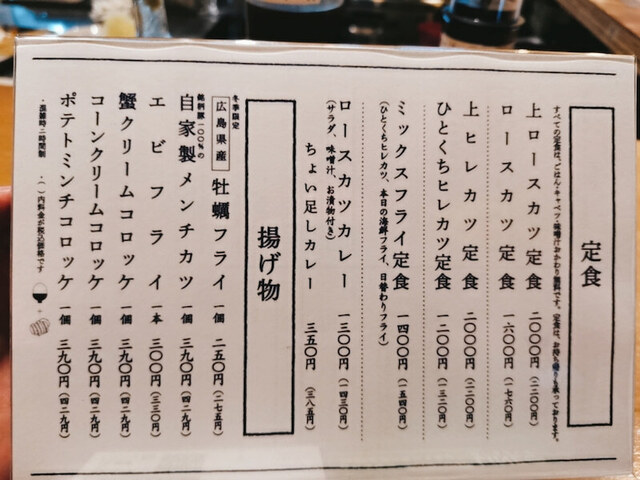 定食
すべての定食は、ごはん・キャベツ・味噌汁おかわり無料です。定食は、お持ち帰りも承っております。
上ロースカツ定食 二〇〇〇円（二二〇〇円）
ロースカツ定食 一六〇〇円（一七六〇円）
上ヒレカツ定食 二〇〇〇円（二二〇〇円）
ひとくちヒレカツ定食 一二〇〇円（一三二〇円）
ミックスフライ定食 一四〇〇円（一五四〇円）
（ひとくちヒレカツ、本日の海鮮フライ、日替わりフライ）
ロースカツカレー 一三〇〇円（一四三〇円）
（サラダ、味噌汁、お漬物付き）
ちょい足しカレー 三五〇円（三八五円）
揚げ物
冬季限定
広島県産 牡蠣フライ 一個 二五〇円（二七五円）
銘柄豚一〇〇％の
自家製メンチカツ 一個 三九〇円（四二九円）
エビフライ 一本 三〇〇円（三三〇円）
蟹クリームコロッケ 一個 三九〇円（四二九円）
コーンクリームコロッケ 一個 三九〇円（四二九円）
ポテトミンチコロッケ 一個 三九〇円（四二九円）
・混雑時二時間制 ・（ ）内料金が税込価格です